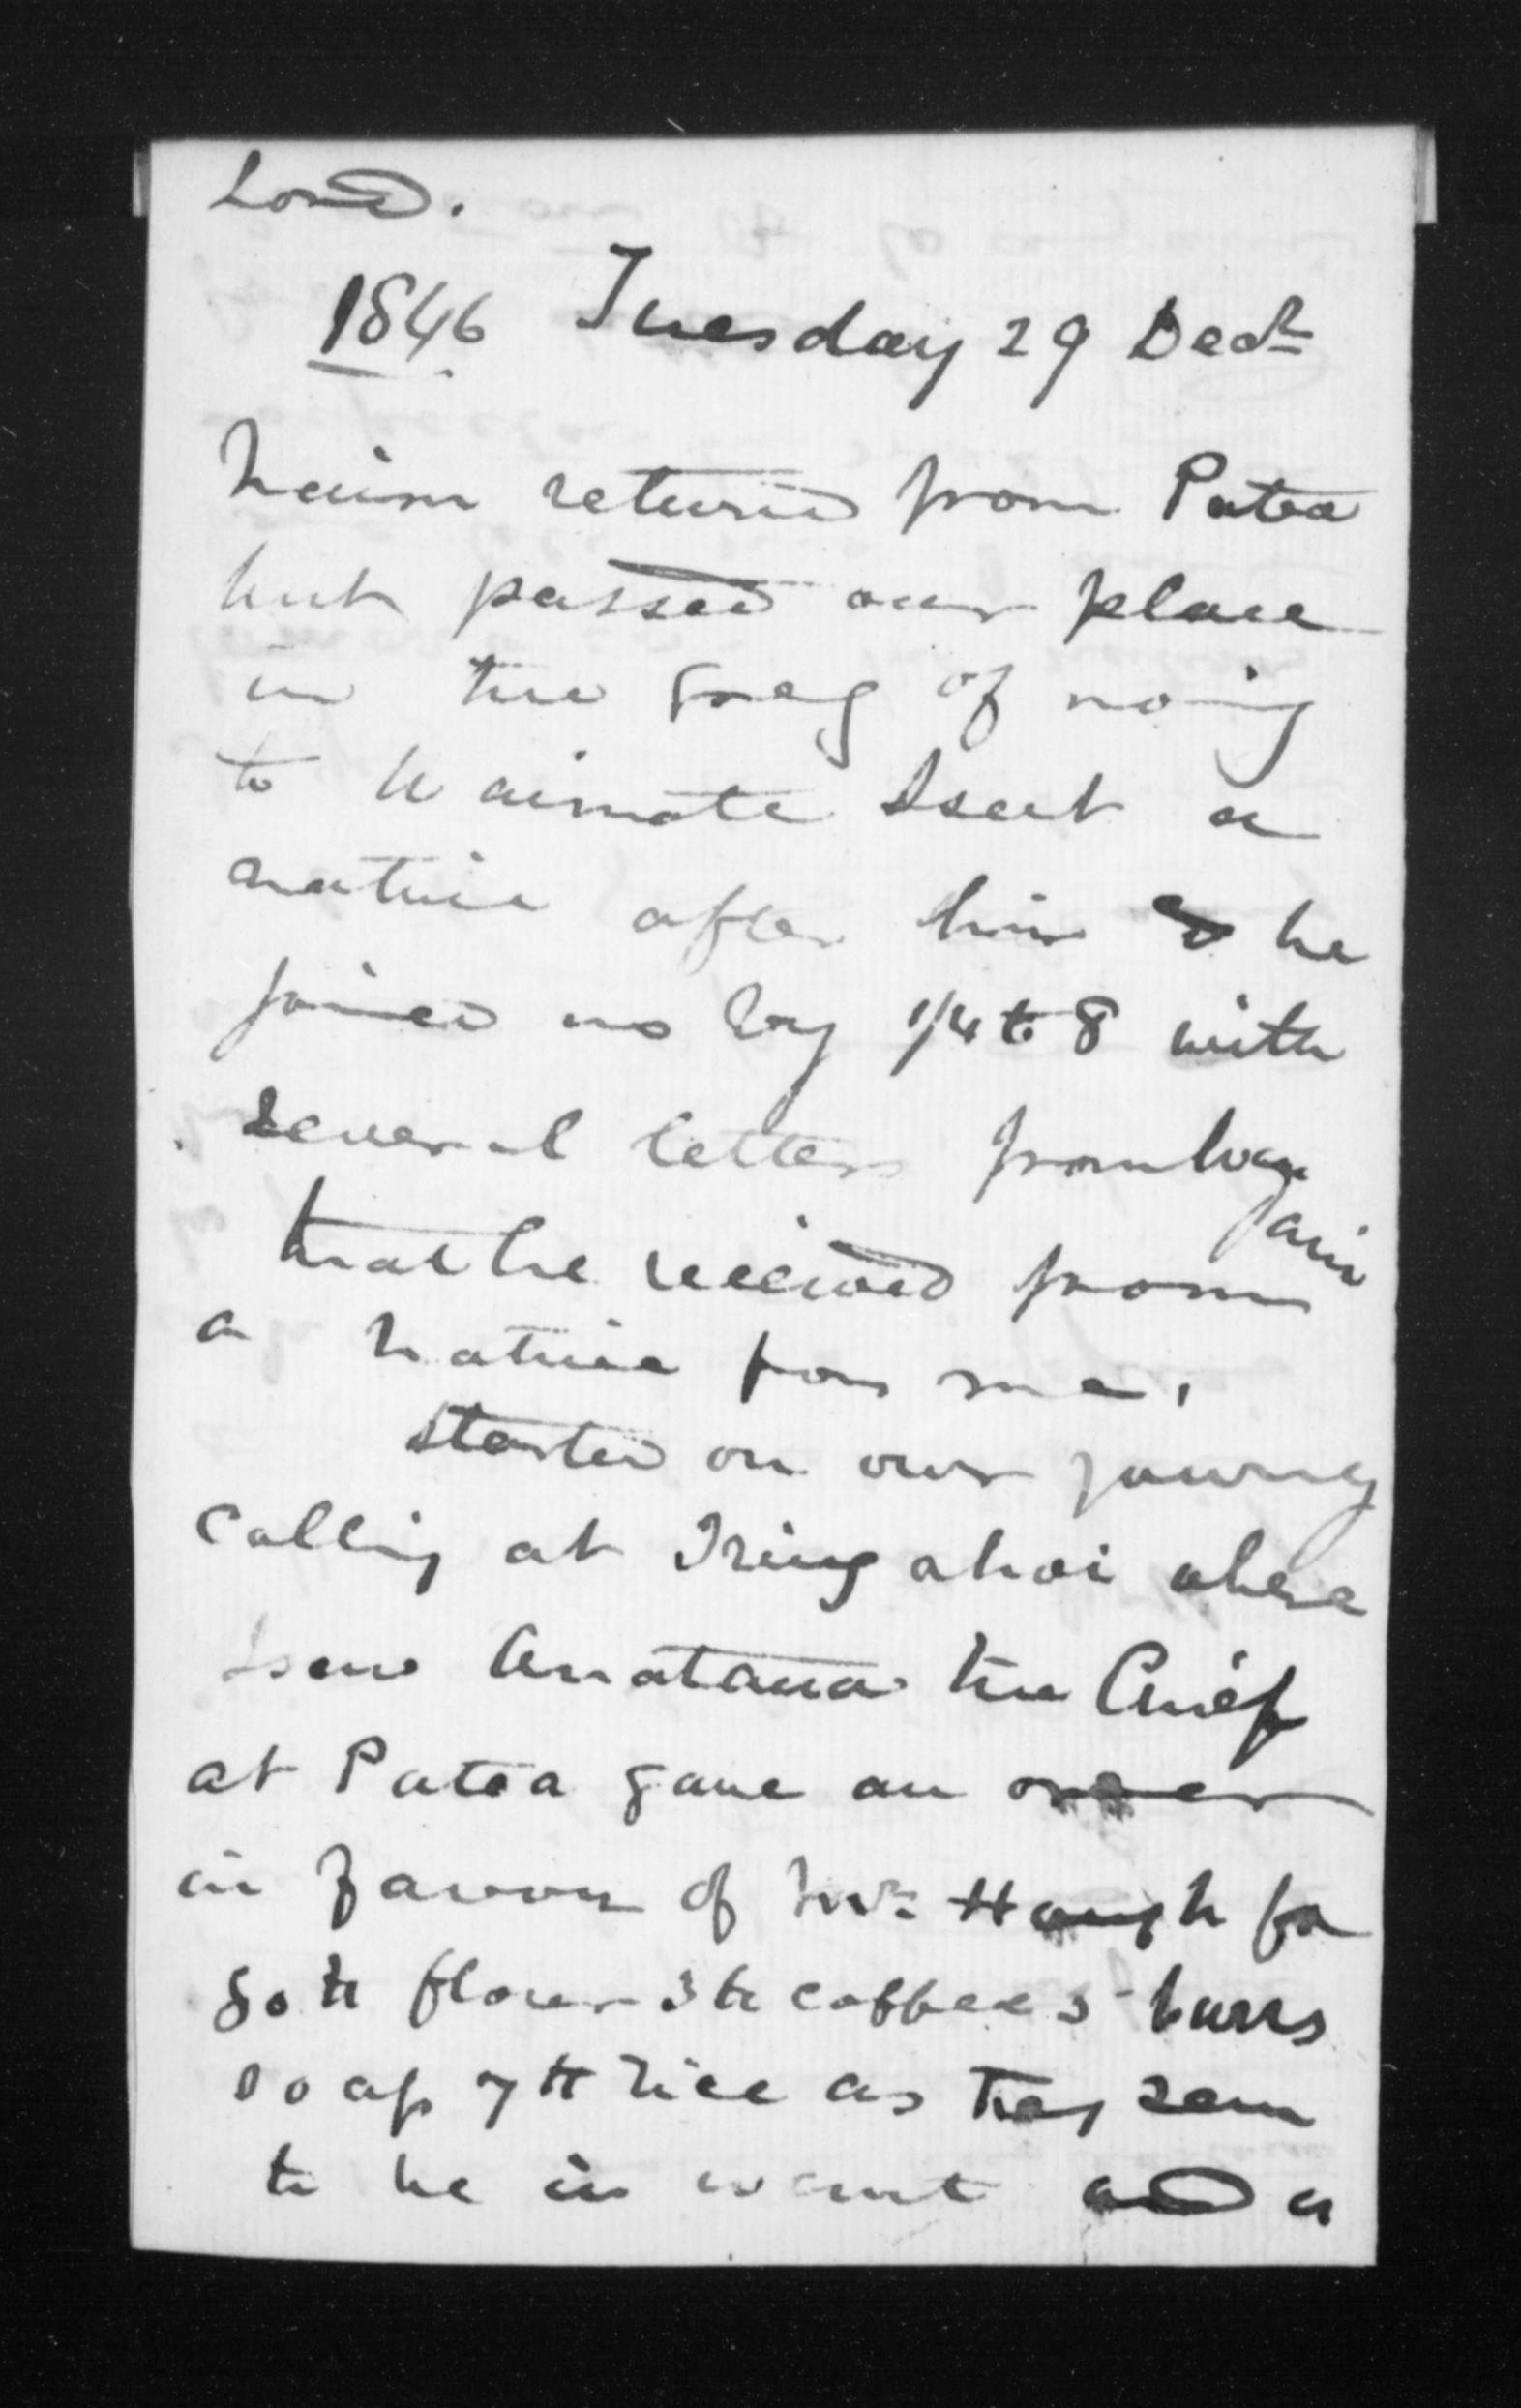 Lord.
1846 Tuesday 29 Decr
Nairn returned from Patea
but passed our place
in the fog of
to Waimate I sent a
native after him & he
joined us by 1/4 to 8 with
several letters from
that he received from
a native for me.
Started on our journey
calling at where
I saw the Chief
at Patea gave an order
in favour of Mr Hough for
lb flour 3 lb coffee 5 bars
soap 7 lb rice as they seem
to be in want and a